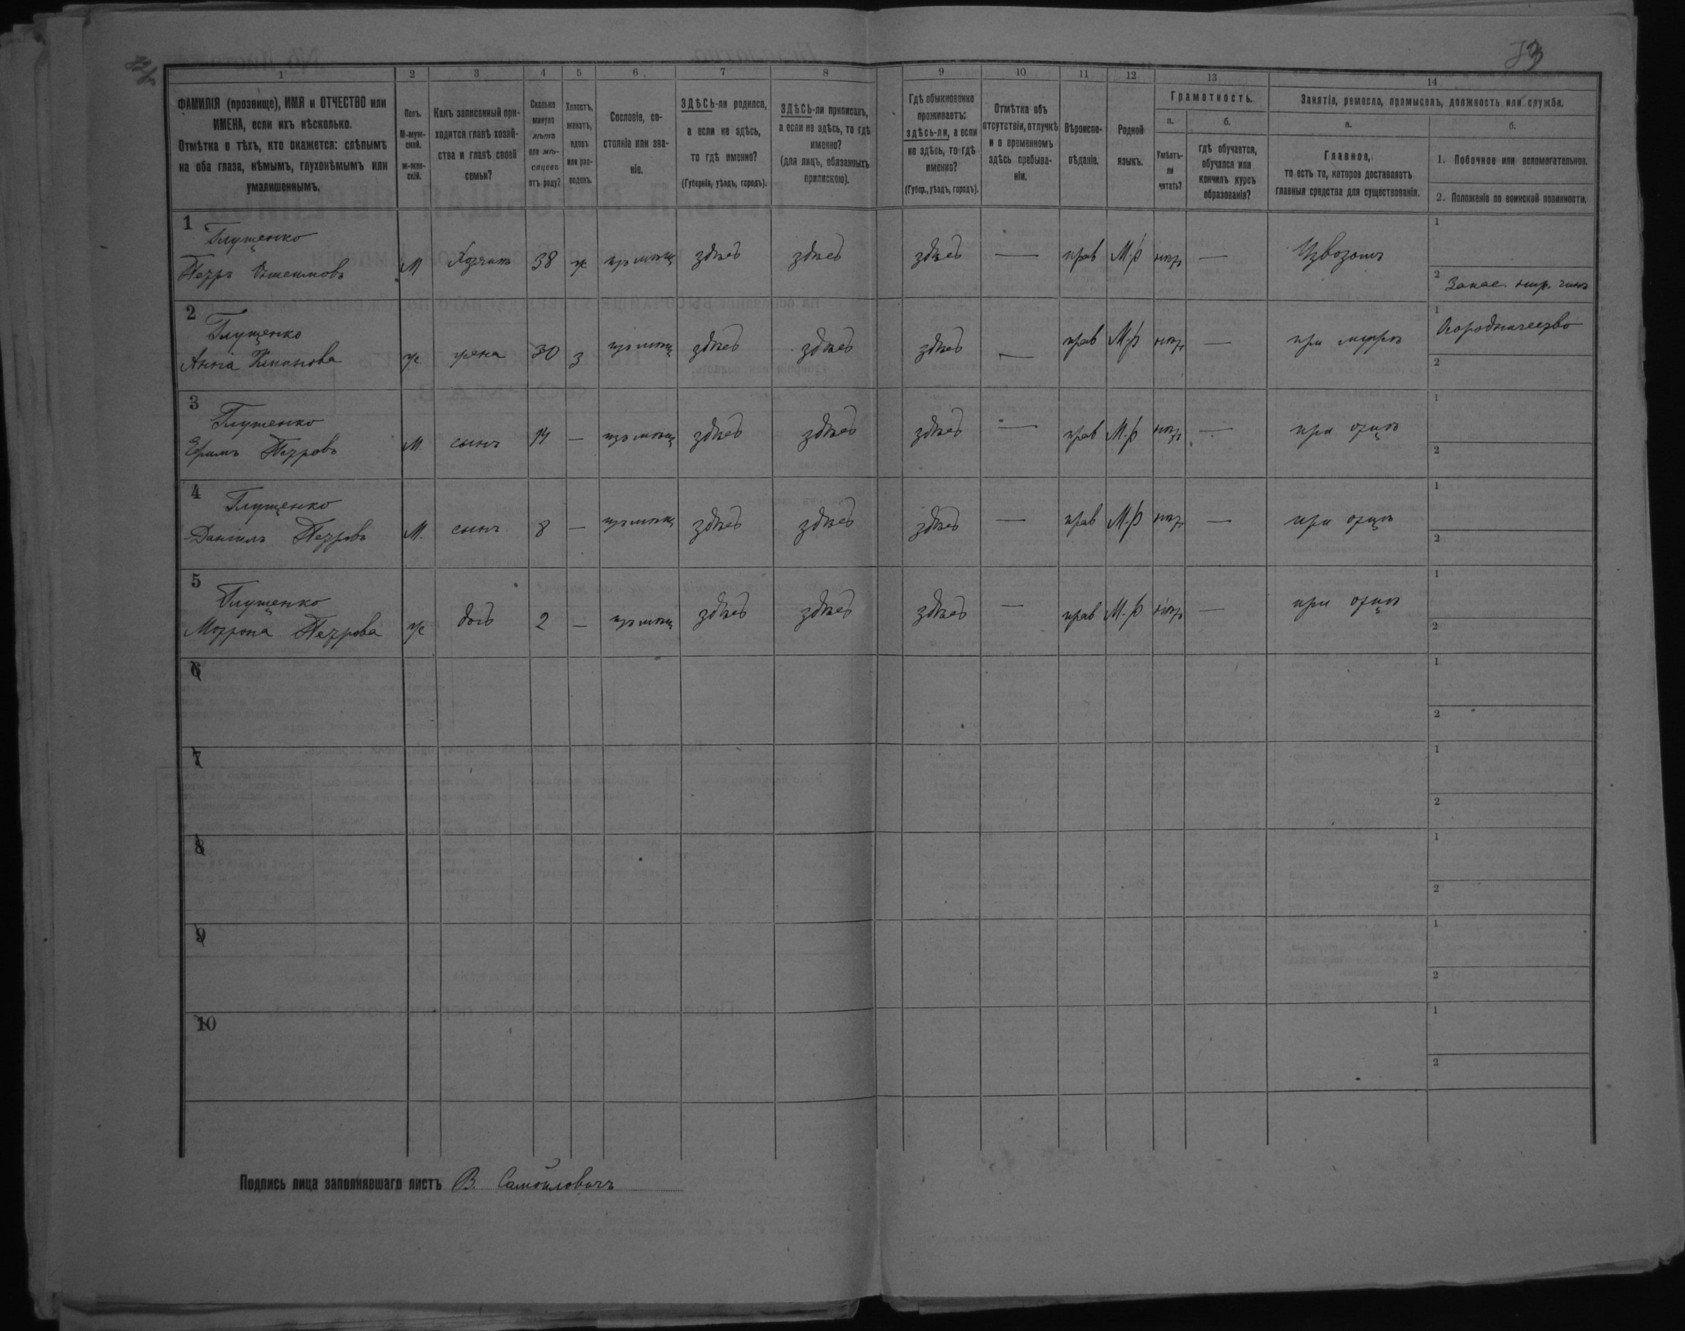 1 2 3 4 5 6 7 8 9 10 11 12 13 14
ФАМИЛІЯ (прозвище), ИМЯ и ОТЧЕСТВО или
ИМЕНА, если ихъ нѣсколько.
Отмѣтка о тѣхъ, кто окажется: слѣпымъ
на оба глаза, нѣмымъ, глухонѣмымъ или
умалишеннымъ.
Полъ.
М-муж-
ской.
ж-жен-
скій.
Какъ записанный при-
ходится главѣ хозяй-
ства и главѣ своей
семьи?
Сколько
минуло
лѣтъ
или мѣ-
сяцевъ
отъ роду?
Холостъ,
женатъ,
вдовъ
или раз-
веденъ.
Сословіе, со-
стояніе или зва-
ніе.
ЗДѢСЬ-ли родился,
а если не здѣсь,
то гдѣ именно?
(Губернія, уѣздъ, городъ).
ЗДѢСЬ-ли приписанъ,
а если не здѣсь, то гдѣ
именно?
(для лицъ, обязанныхъ
припискою).
Гдѣ обыкновенно
проживаетъ:
здѣсь-ли, а если
не здѣсь, то гдѣ
именно?
(Губер., уѣздъ, городъ).
Отмѣтка объ
отсутствіи, отлучкѣ
и о временномъ
здѣсь пребыва-
ніи.
Вѣроиспо-
вѣданіе.
Родной
языкъ.
Грамотность.
а. б.
Умѣетъ-
ли
читать?
гдѣ обучается,
обучался или
кончилъ курсъ
образованія?
Занятіе, ремесло, промыселъ, должность или служба.
а. б.
Главное,
то есть то, которое доставляетъ
главныя средства для существованія.
1. Побочное или вспомогательное.
2. Положеніе по воинской повинности.
1 Глущенко 1
Петръ М 38 ж здѣсь здѣсь здѣсь — прав М.р нѣтъ — Извозомъ
2 Запас. ниж. чинъ
2 Глущенко 1 Огородничество
Анна ж жена 30 з здѣсь здѣсь здѣсь — прав М.р нѣтъ — при мужѣ
2
3 Глущенко 1
Ефимъ Петровъ М. сынъ 14 — здѣсь здѣсь здѣсь — прав М.р нѣтъ — при отцѣ
2
4 Глущенко 1
Даніилъ Петровъ М. сынъ 8 — здѣсь здѣсь здѣсь — прав М.р нѣтъ — при отцѣ
2
5 Глущенко 1
Петрова ж дочь 2 — здѣсь здѣсь здѣсь — прав М.р нѣтъ — при отцѣ
2
6 1
2
7 1
2
8 1
2
9 1
2
10 1
2
Подпись лица заполнявшаго листъ В. Самойловичъ